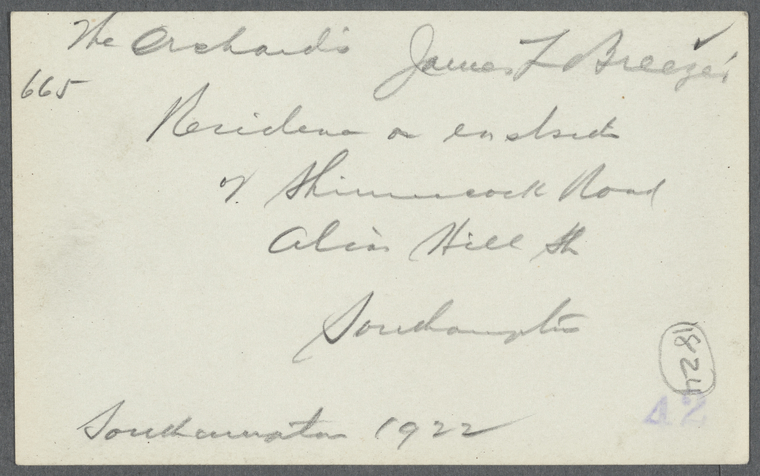 The Orchard's James L Breeze's
665
Residence on eastside
of Shinnecock Road
Hill St
Southampton
1824
42
Southampton 1922